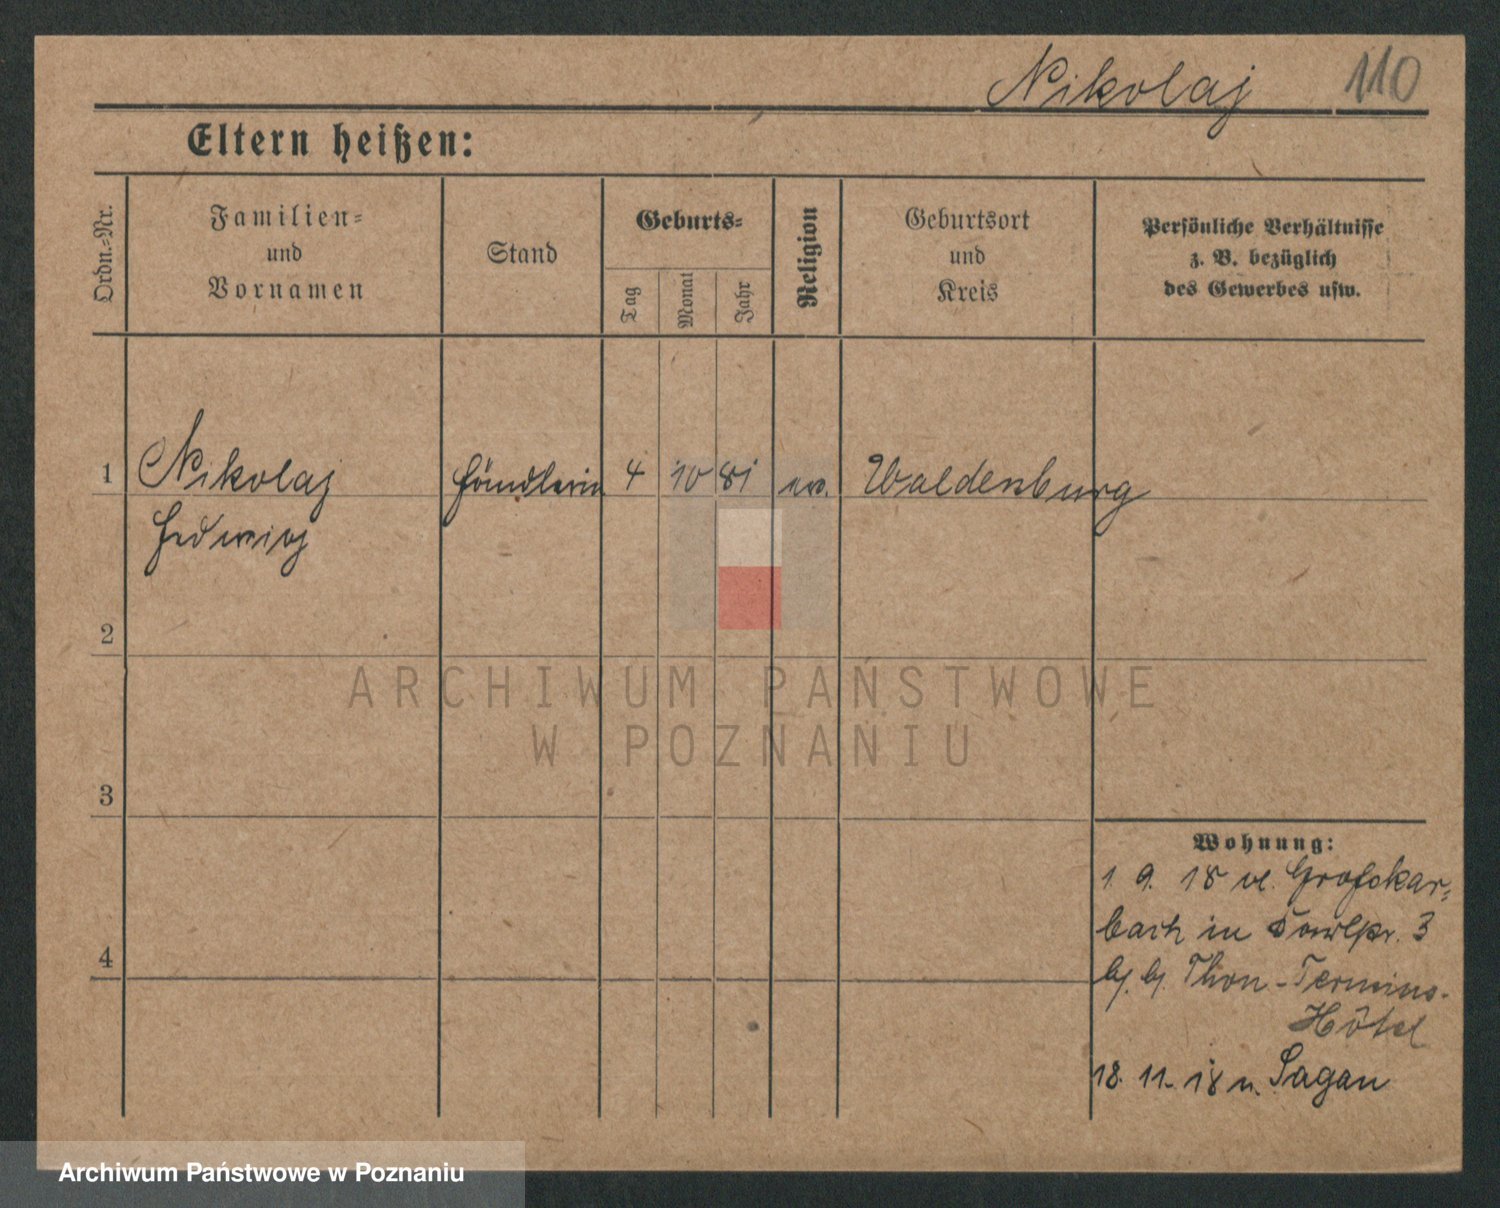 Nikolaj 110
Eltern heißen:
Ordn.-Nr.
Familien-
und
Vornamen
Stand
Geburts-
Tag
Monat
Jahr
Religion
Geburtsort
und
Kreis
Persönliche Verhältnisse
z. B. bezüglich
des Gewerbes usw.
1 Nikolaj Händlerin 4 10 81 ev. Waldenburg
Hedwig
2
ARCHIWUM PAŃSTWOWE
W POZNANIU
3
Wohnung:
1. 9. 18 v.
bach in 3
b. b. Thon-Terminus-
Hôtel
4
18. 11. 18 n. Sagan
Archiwum Państwowe w Poznaniu